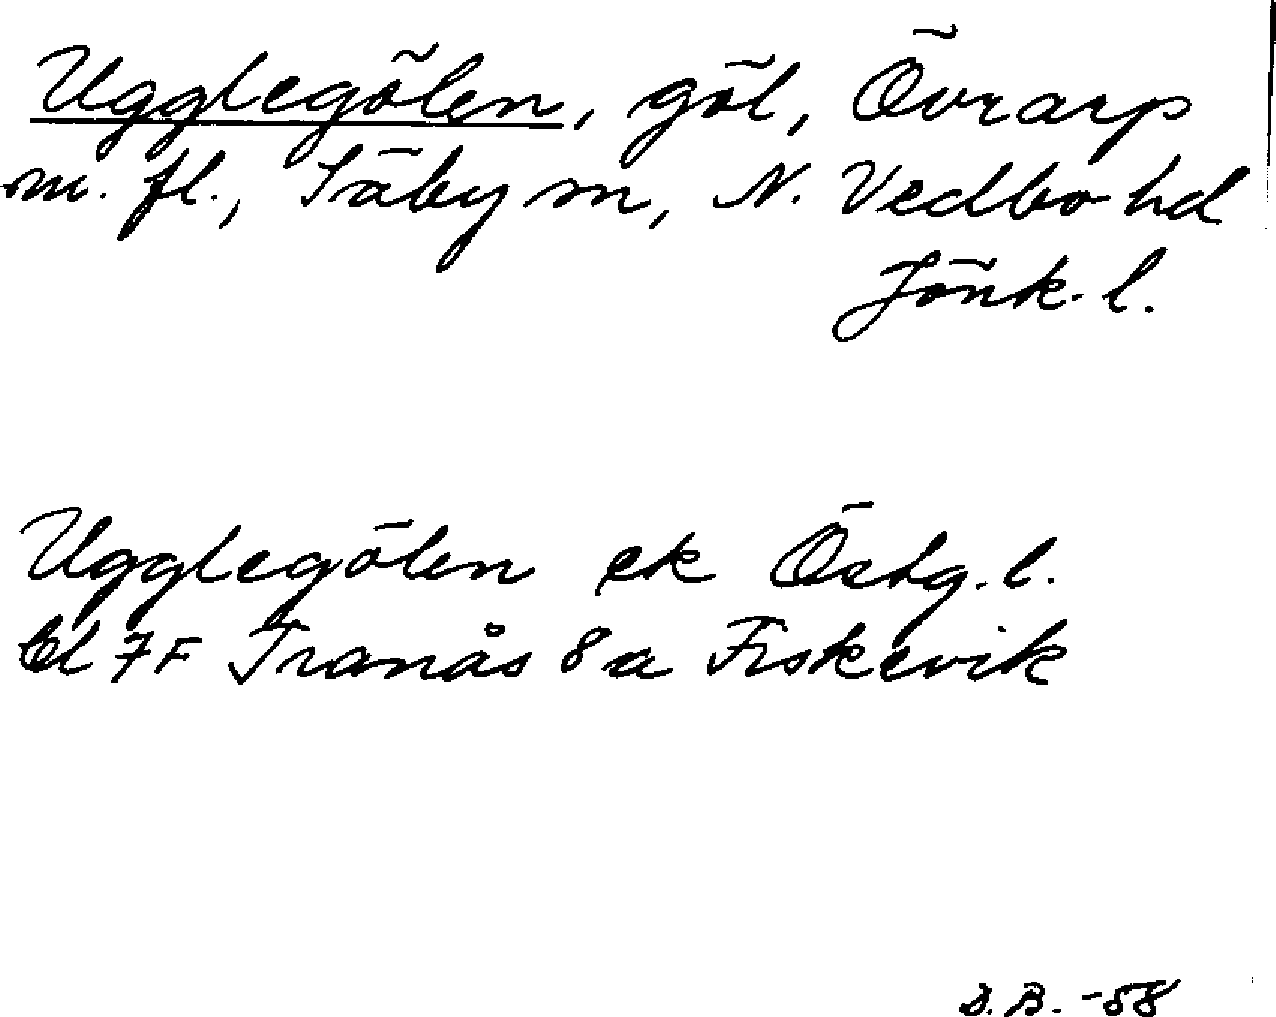 Ugglegölen, göl, Övrarp
m. fl., Säby sn, N. Vedbo hd
Jönk. l.
Ugglegölen ek Östg. l.
bl 7F Tranås 8a Fiskevik
D. B. -58